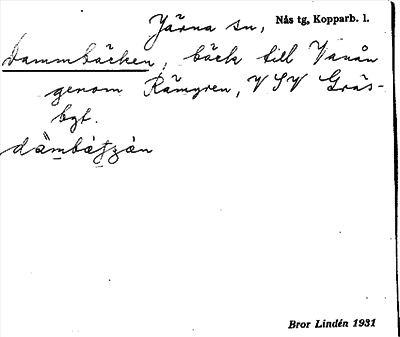 Järna sn, Nås tg, Kopparb. l.
Dammbäcken, bäck till Vanån
genom Rämyren, VSV Gräs-
bgt.
Bror Lindén 1931